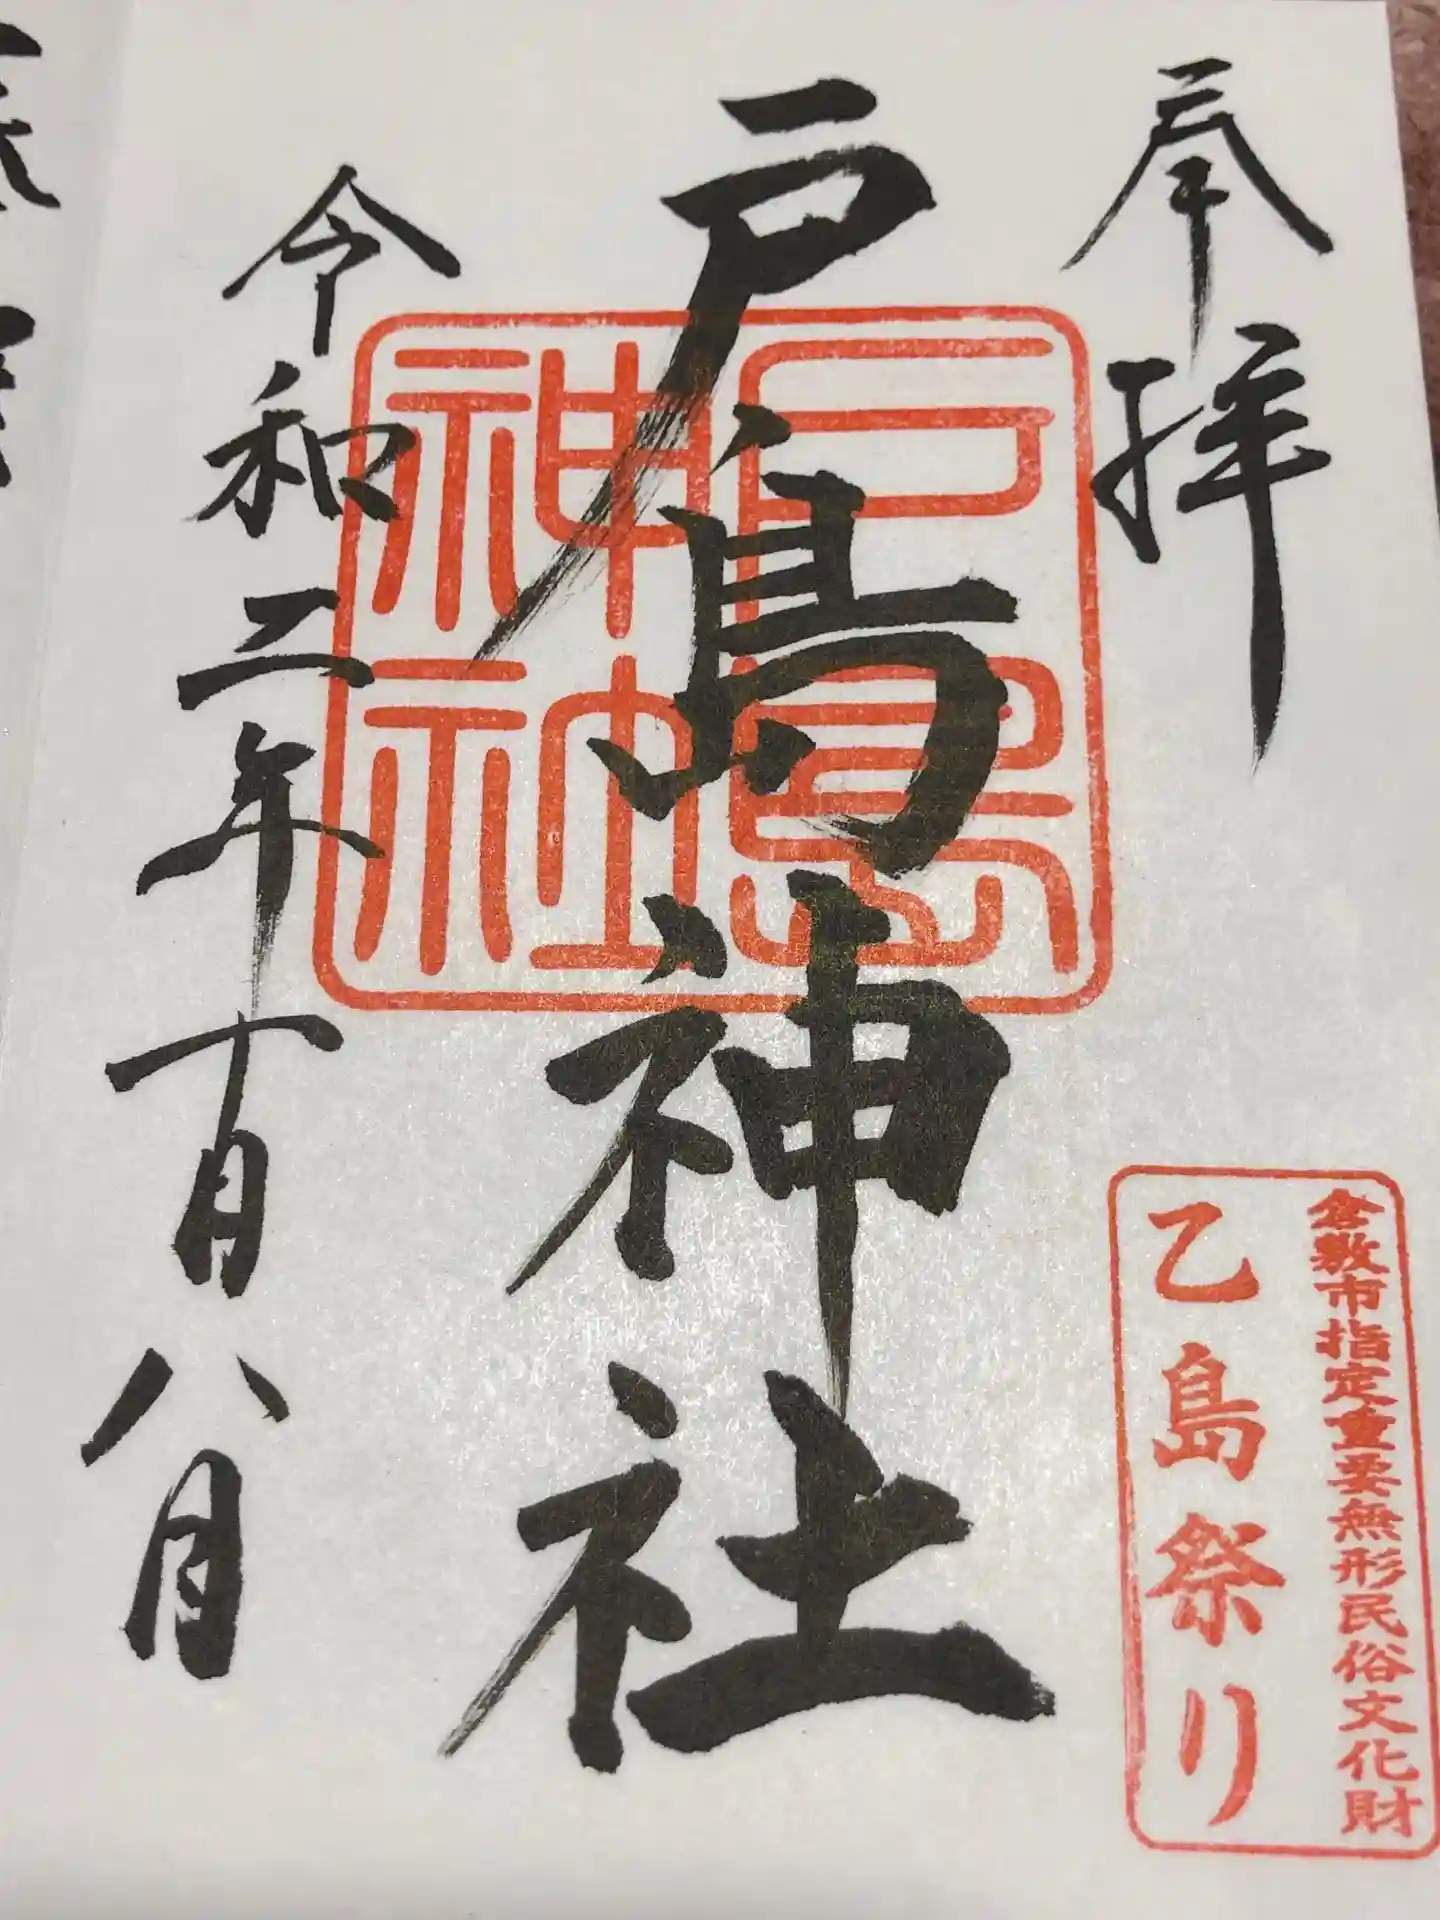 奉拝
戸島神社
戸島
神社
令和二年十月八日
倉敷市指定重要無形民俗文化財
乙島祭り